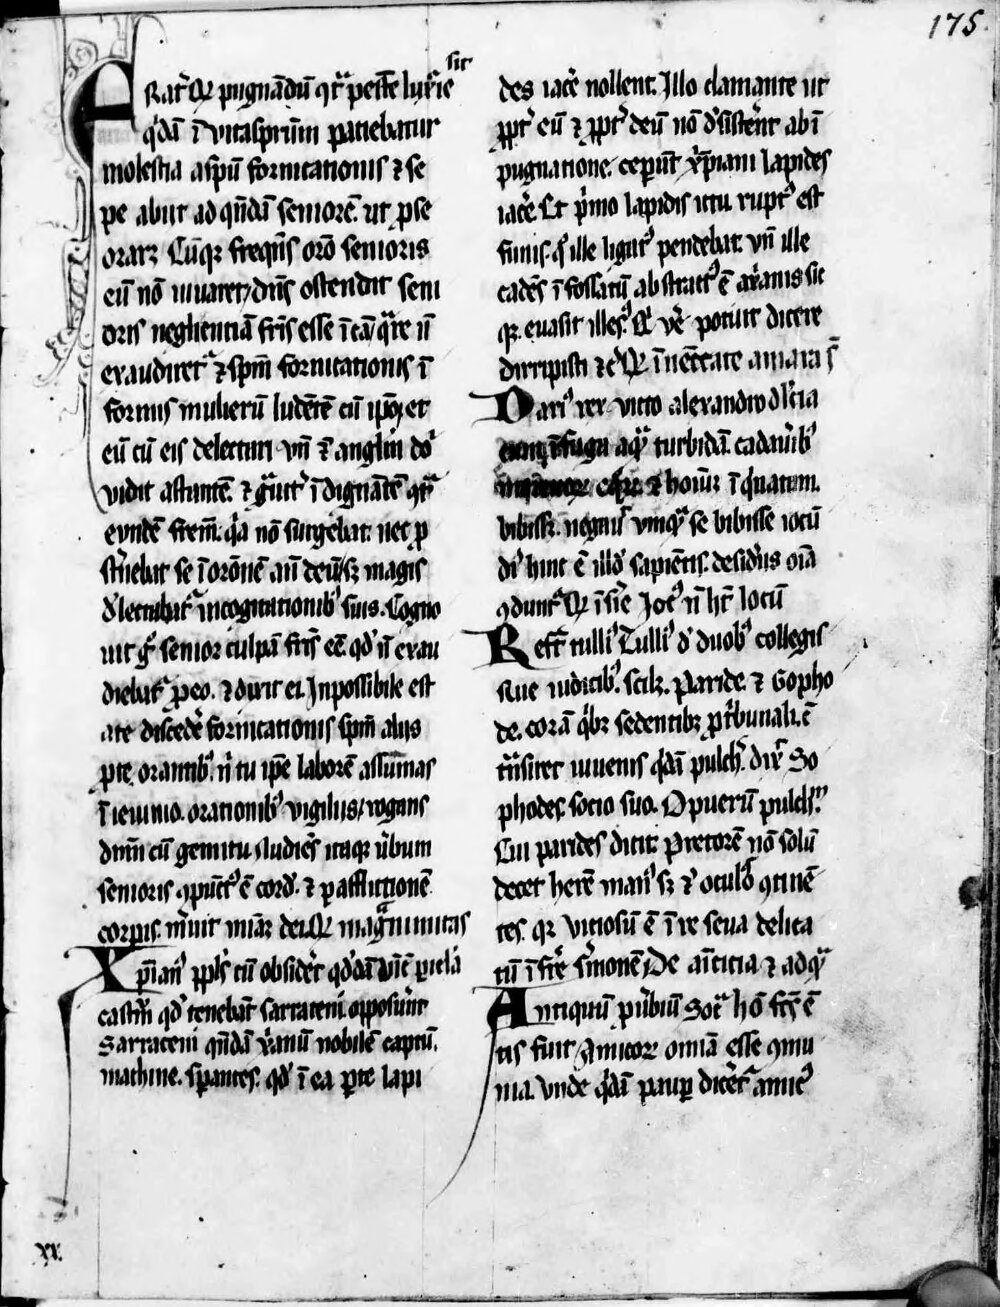 175.
sit
Frat̄ Q̄ pugnādū ꝯtᷓ pestē luxͥie
qͥdā ī vitaspatrūm patiebatur
molestia a spū fornicationis ⁊ se
pe abiit ad qn̄dā seniorē. ut ꝓ se
oraret Cūqꝫ freqn̄s orō senioris
eū nō iuuaret, dn̄s ostendit seni
oris negligentiā fr̄is esse ī cā qͣre nō
exaudiret᷑ ⁊ spm̄ fornicationis ī
formis mulierū ludētē cū ipō, et
eū cū eis delectari vn̄ ⁊ angelū dei
vidit astantē. ⁊ gͣuit̄ īdignātē ꝯtᷓ
eundē frēm. qͥa nō surgebat. nec ꝓ
st̄nebat se ī orōnē an̄ deū sꝫ magis
dl̄ectabat᷑ in cogitationibꝰ suis. Cogno
uit gͦ senior culpā fr̄is eē. qd̓ nō exau
diebat᷑ ꝓ eo. ⁊ dixit ei. Inpossibile est
a te discedē fornicationis spm̄ aliis
ꝓ te orantibꝰ. nͥ tu ipē laborē assumas
ī ieiunio. orationibꝰ vigiliis, rogans
dn̄m cū gemitu Audiēs itaqꝫ ūbum
senioris ꝯpūctꝰ ē corde. ⁊ ꝑ afflictionē
corpis. mͤuit miā dei. Q̄ magͣnimitas
Xp̄ianꝰ ppl̄s cū obsidēt qd̓dā
castrū qd̓ tenebāt sarraceni. opposuert
Sarraceni qn̄dā xͥanū nobilē captū.
machine. sperantes. qd̓ ī ea ꝑte lapi
des iacē nollent. Illo clamante ut
ꝓpt̄ eū ⁊ ꝓpt̄ deū nō desisteret ab ī
pugnatione. ceperūt xp̄iani lapides
iacē. Et pͥmo lapidis ictu. ruptꝰ est
funis. qͦ ille ligatꝰ pendebat. vn̄ ille
cadēs ī fossatū abstractꝰ ē a xͥanis sic
qꝫ. euasit illesꝰ. Et vē potuit dicere
dirripisti ⁊c̄ Q̄ ī necitate amara s̄
Dariꝰ rex victo alexandro dicia
fuga aqͣ turbidā. cadauibꝰ
⁊ hoīuꝫ īqͥnatam.
bibissꝫ. negauit vnqͣ se bibisse iocū
diꝰ hinc ē illd̓ sapiētis. desideriis oīa
ꝯdunt᷑ Q̄ ī sene Jocꝰ nō ht̄ locū
Refert tulliꝰ Tulliꝰ de duobꝰ collegis
siue iudicibꝰ. scilꝫ. Paride. ⁊ Sopho
de. corā qͥbꝫ sedentibꝫ ꝓ tͥbunali. cū
tͣnsiret iuuenis qͥdā pulch̄. dix̄ So
phodes. socio suo. O puerū pulchᵐ
Cui parides dicit. Pretorē nō solū
decet herē manꝰ sꝫ ⁊ oculos ꝯtinē
tes. qꝫ vitiosū ē ī re seua delica
tū īferre sͤmonē De amicitia ⁊ ad qͣ
Antiquū ꝓūbiū Socͣt
tis fuit Amicorꝫ omīa esse ꝯmu
nia. Vnde qͥdā pauꝑ dicēt᷑ amicꝰ
xx.